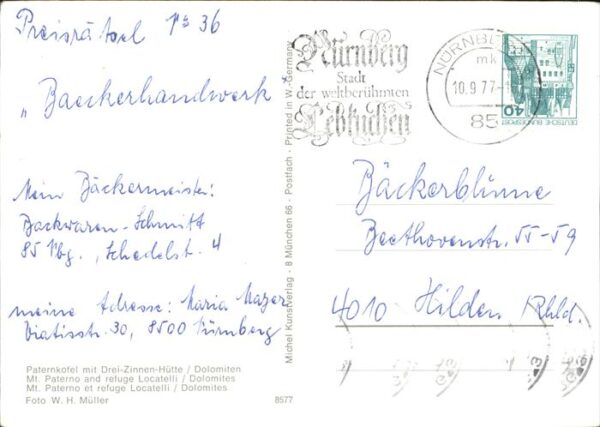 Preisrätsel Nr 36
„Baeckerhandwerk"
Mein Bäckermeister:
Backwaren-Schmitt
85 Nbg., Schedelst. 4
meine Adresse: Maria Mayer
Viatisstr. 30, 8500 Nürnberg
Paternkofel mit Drei-Zinnen-Hütte / Dolomiten
Mt. Paterno and refuge Locatelli / Dolomites
Mt. Paterno et refuge Locatelli / Dolomites
Foto W. H. Müller
8577
Michel Kunstverlag - 8 München 66 - Postfach - Printed in W.-Germany
Nürnberg
Stadt
der weltberühmten
Lebkuchen
NÜRNB
mk
10.9.77
85
40
DEUTSCHE BUNDESPOST
Bäckerblume
Beethovenstr. 55-59
4010 Hilden Rhld.